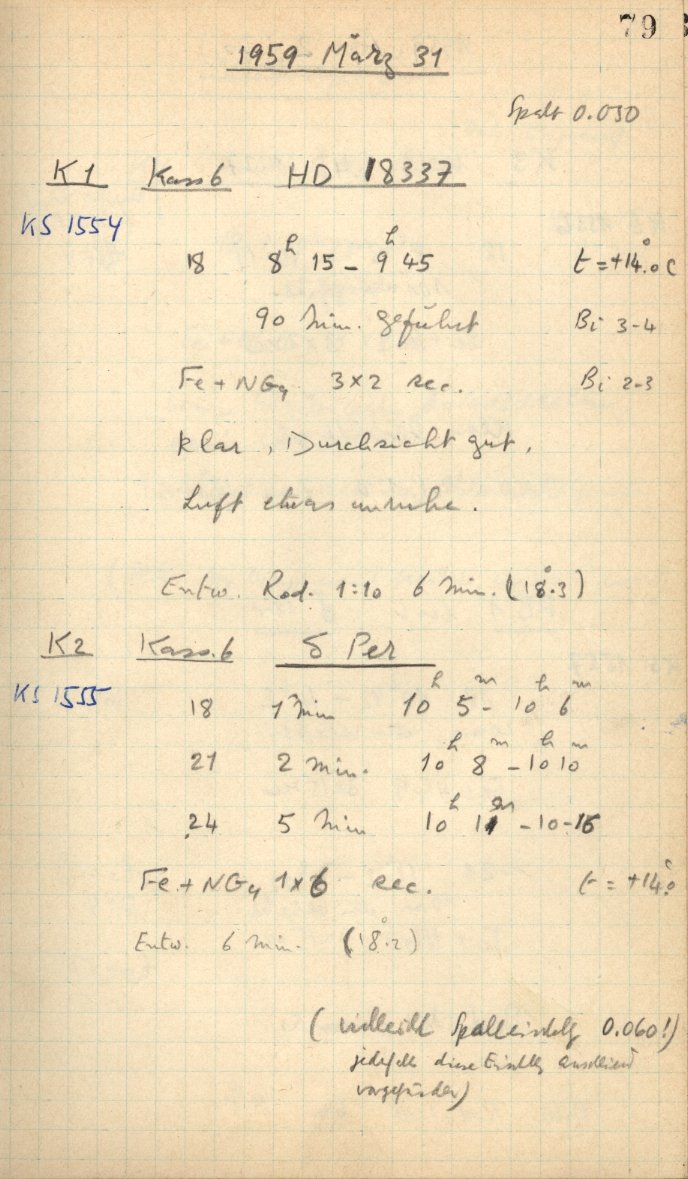 79
1959 März 31
Spalt 0.030
K1 Kass 6 HD 18337
KS 1554
18 8h 15 – 9h 45 t = +14.°0 C
90 Min. geführt Bi 3-4
Fe + NG4 3x2 sec. Bi 2-3
klar, Durchsicht gut,
Luft etwas unruhe.
Entw. Rod. 1:10 6 Min. (18.°3)
K2 Kass. 6 δ Per
KS 1555
18 1 Min 10h 5m – 10h 6m
21 2 Min. 10h 8m – 10h 10m
24 5 Min 10h 11m – 10-16
Fe + NG4 1x6 sec. t = +14.°0
Entw. 6 Min. (18.°2)
(vielleicht Spalteinstellg 0.060!)
jedenfalls diese Einstllg anschließend
vorgefunden)